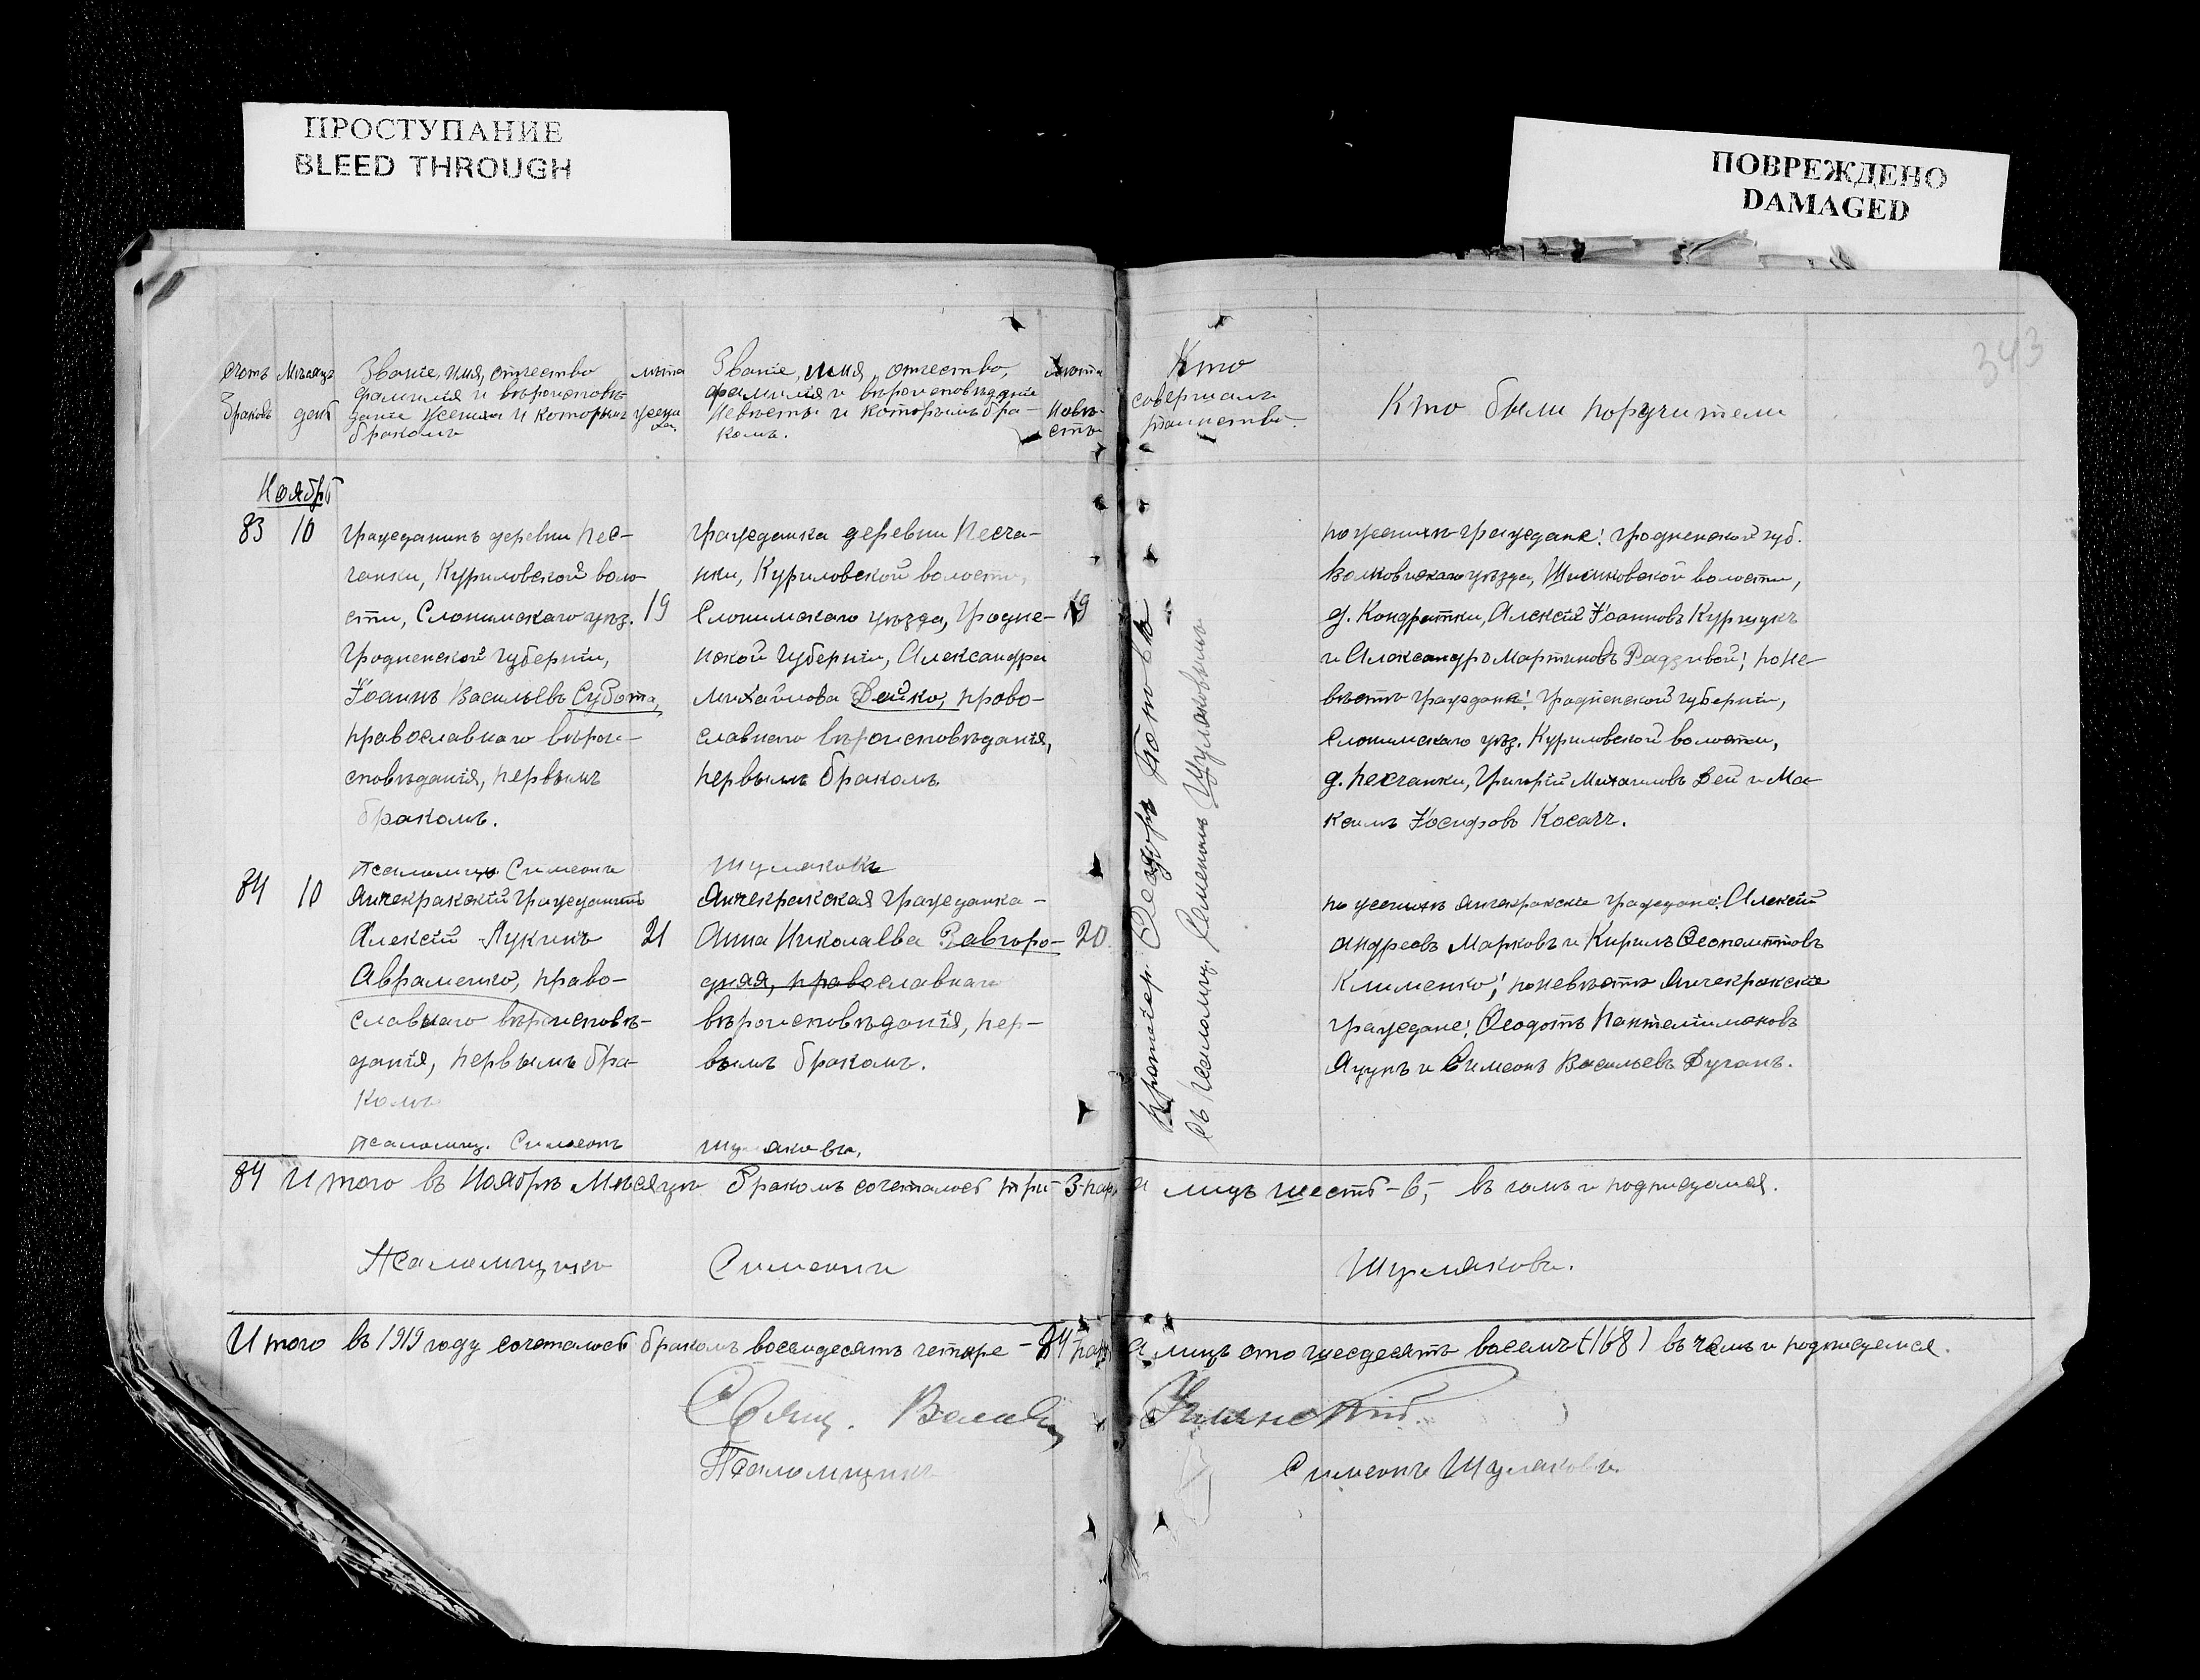 ПРОСТУПАНИЕ
BLEED THROUGH
ПОВРЕЖДЕНО
DAMAGED
343
Счетъ браковъ
Мѣсяцъ день
Званіе, имя, отчество
фамилія и вѣроисповѣ-
даніе жениха и которымъ
бракомъ
лѣта жениха
Званіе, имя, отчество,
фамилія и вѣроисповѣданіе
невѣсты и которымъ бра-
комъ.
лѣта невѣ-
сты
Кто
совершалъ
таинство.
Кто были поручители
Ноябрь
83 10
гражданинъ деревни Пес-
чанки, Куриловской воло-
сти, Слонимскаго уѣз. 19
Гродненской губерніи,
Іоаннъ Васильевъ Субота,
православнаго вѣрои-
сповѣданія, первымъ
бракомъ.
гражданка деревни Песча-
нки, Куриловской волости,
Слонимскаго уѣзда, Гродне- 19
нской губерніи, Александра
Михайлова Дейко, право-
славнаго вѣроисповѣданія,
первымъ бракомъ
по женихѣ граждане: Гродненской губ.
Волковискаго уѣзда, волости,
д. Кондратки, Алексій Іоанновъ
и Александръ Мартиновъ Радзивой; по не-
вѣстѣ граждане: Гродненской губерніи,
Слонимскаго уѣз. Куриловской волости,
д. Песчанки, Григорій Михаиловъ Дей и Ма-
ксимъ Іосифовъ Косачъ.
Псаломщ. Симеонъ Шумаковъ
84 10
Анчекракскій гражданинъ
Алексій Лукинъ 21
Авраменко, право-
славнаго вѣроисповѣ-
данія, первымъ бра-
комъ
Анчекракская гражданка
Анна Николаева Завгоро- 20
дная, православнаго
вѣроисповѣданія, пер-
вымъ бракомъ.
по женихѣ Анчекракскіе граждане: Алексій
Андреевъ Марковъ и Кирилъ
Клименко; по невѣстѣ Анчекракскіе
граждане: Феодотъ Пантелимоновъ
Яцунъ и Симеонъ Васильевъ Дуганъ.
Протоіерей Феодоръ
съ Псаломщ. Симеономъ Шумаковымъ
Псаломщ. Симеонъ Шумаковъ.
84 Итого въ Ноябрѣ Мѣсяцѣ Бракомъ сочеталось три - 3 пары а лицъ шесть - 6, въ чемъ и подписуемся.
Псаломщикъ Симеонъ Шумаковъ.
Итого въ 1919 году сочеталось бракомъ восемдесятъ четыре - 84 пары а лицъ сто шесдесятъ восемъ (168) въ чемъ и подписуемся.
Свящ.
Псаломщикъ Симеонъ Шумаковъ.